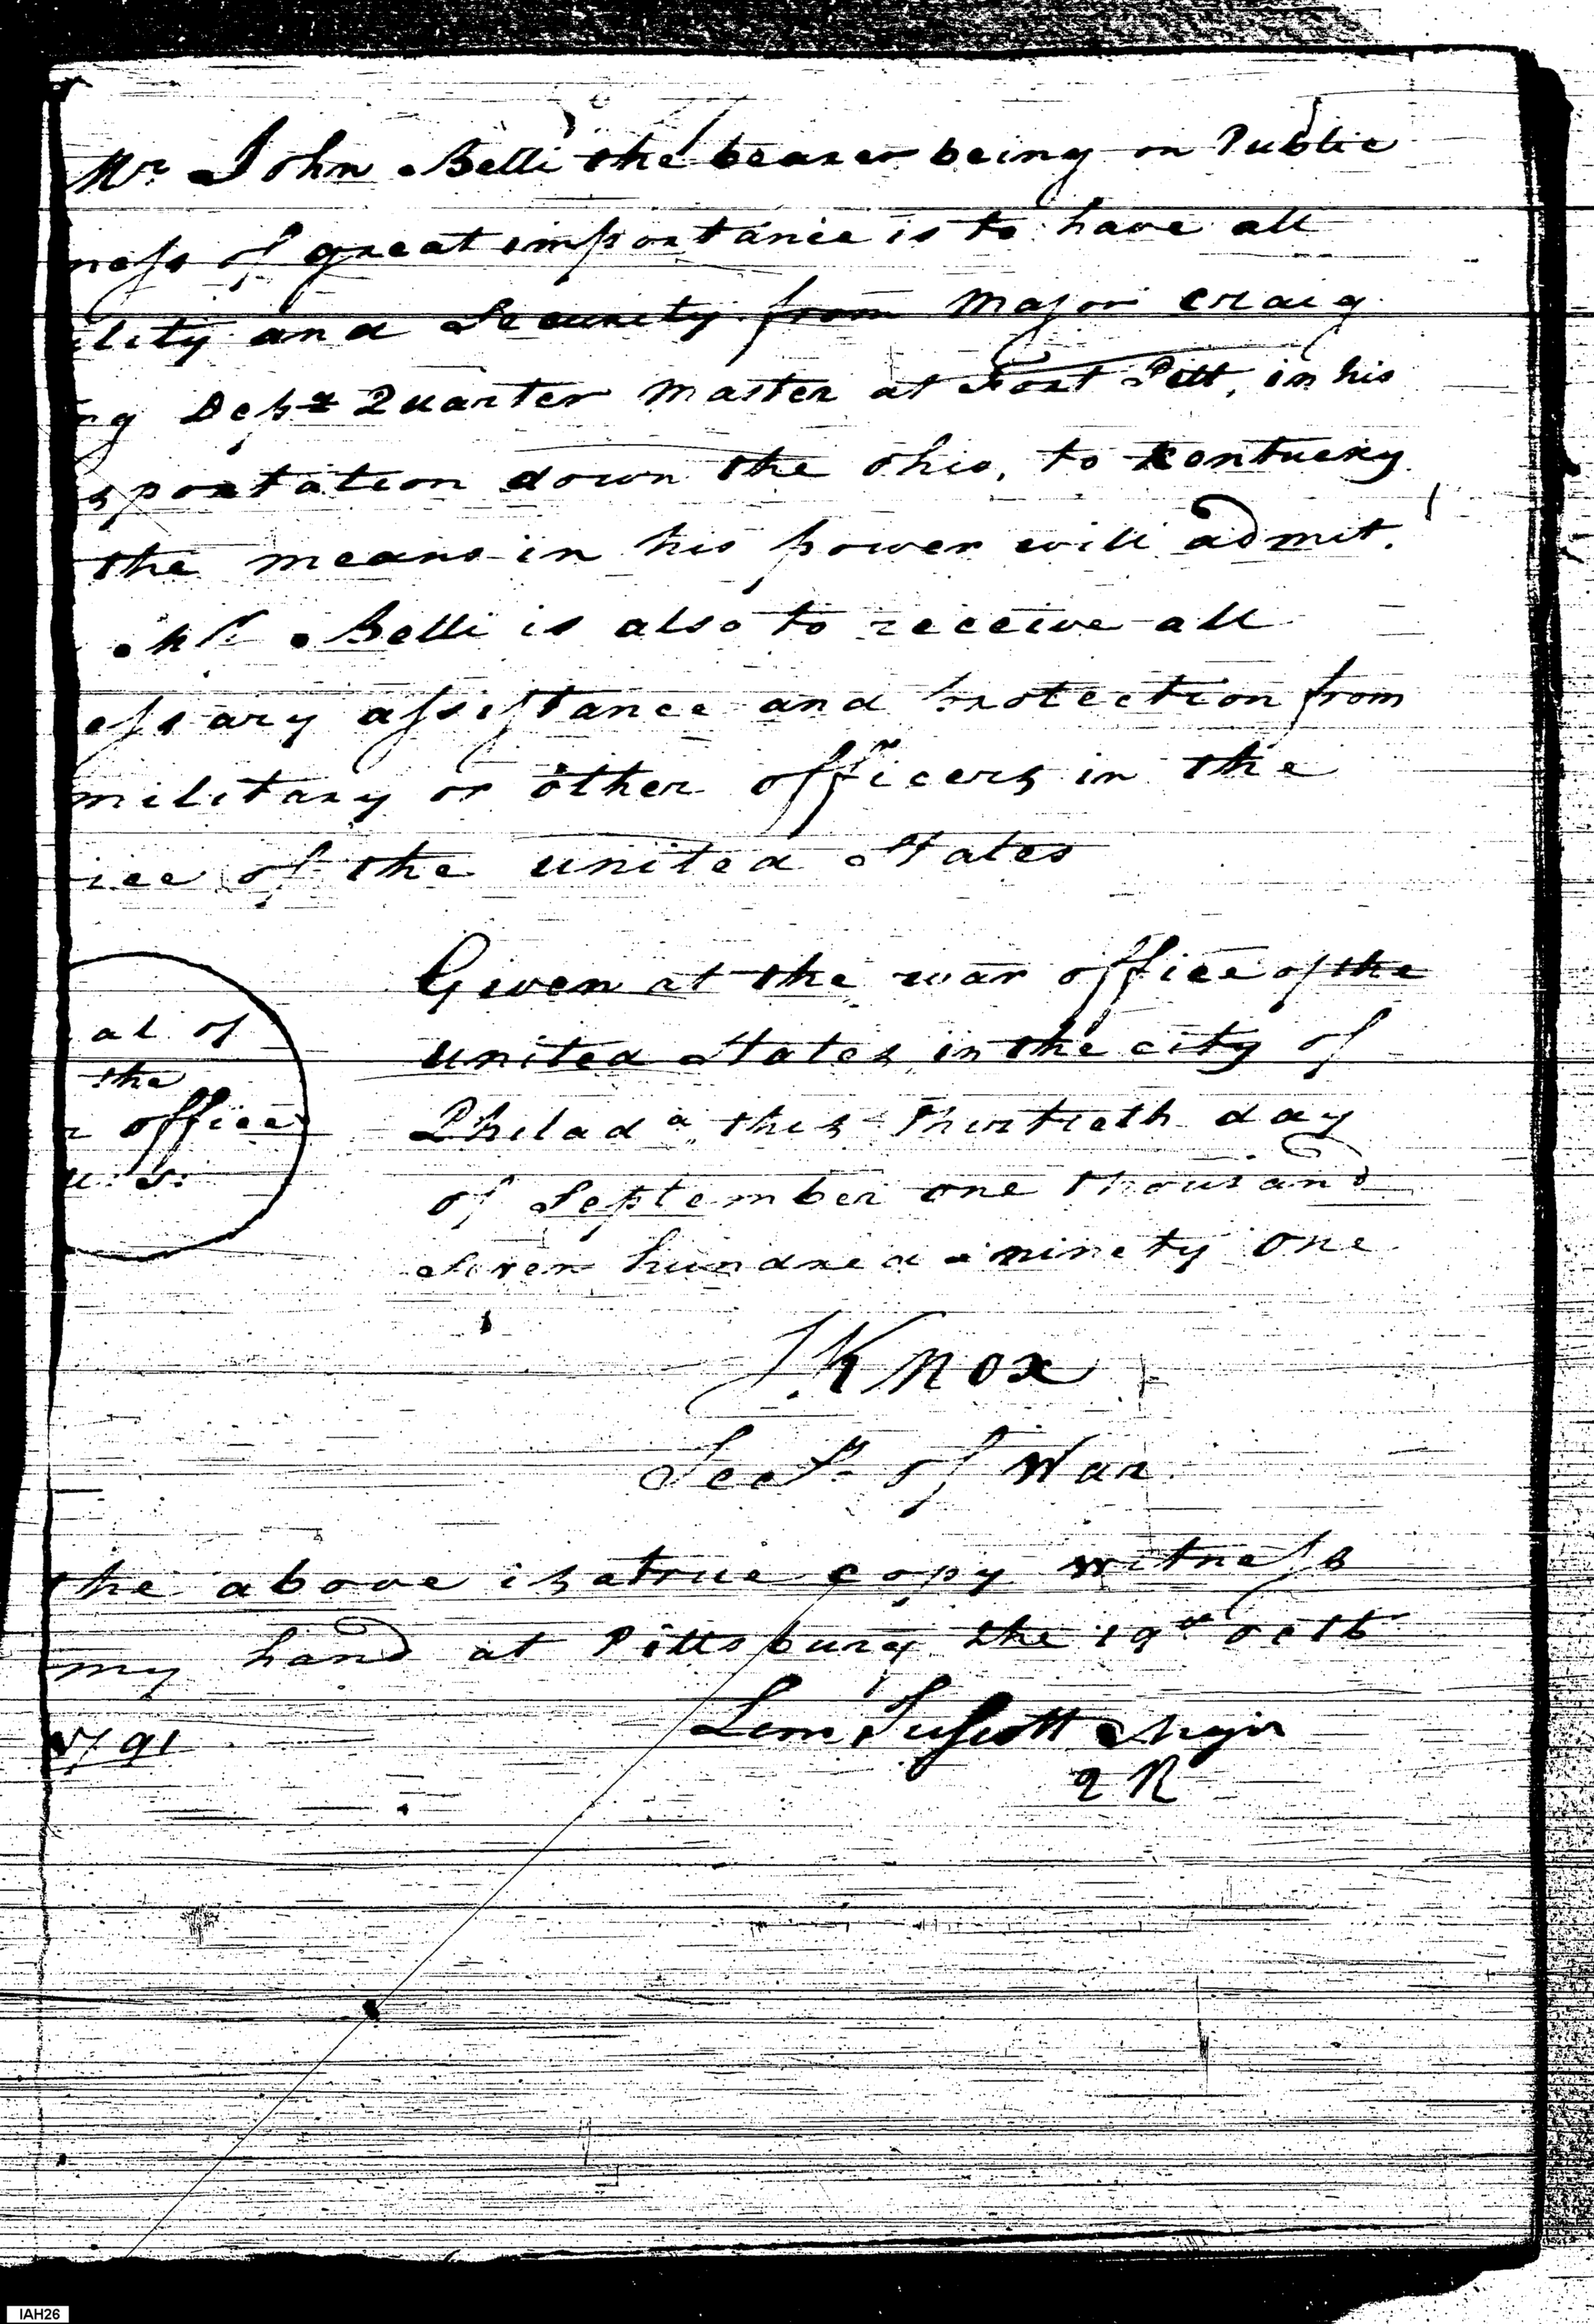 Mr John Belli the bearer being on Public
ness of great importance is to have all
ility and Security from Major Craig
ng Depy Quarter Master at Fort Pitt, in his
sportation down the Ohio, to Kentucky
the means in his power will admit.
Mr Belli is also to receive all
essary assistance and protection from
military or other officers in the
ice of the united States
Given at the war office of the
united States in the city of
Philada this Thirtieth day
of September one thousand
seven hundred & ninety one
al of
the
r office
u. s.
HKnox
Secy of War
the above is a true copy witness
my hand at Pittsburg the 19th Octb
1791
Lem Major
2 R
IAH26